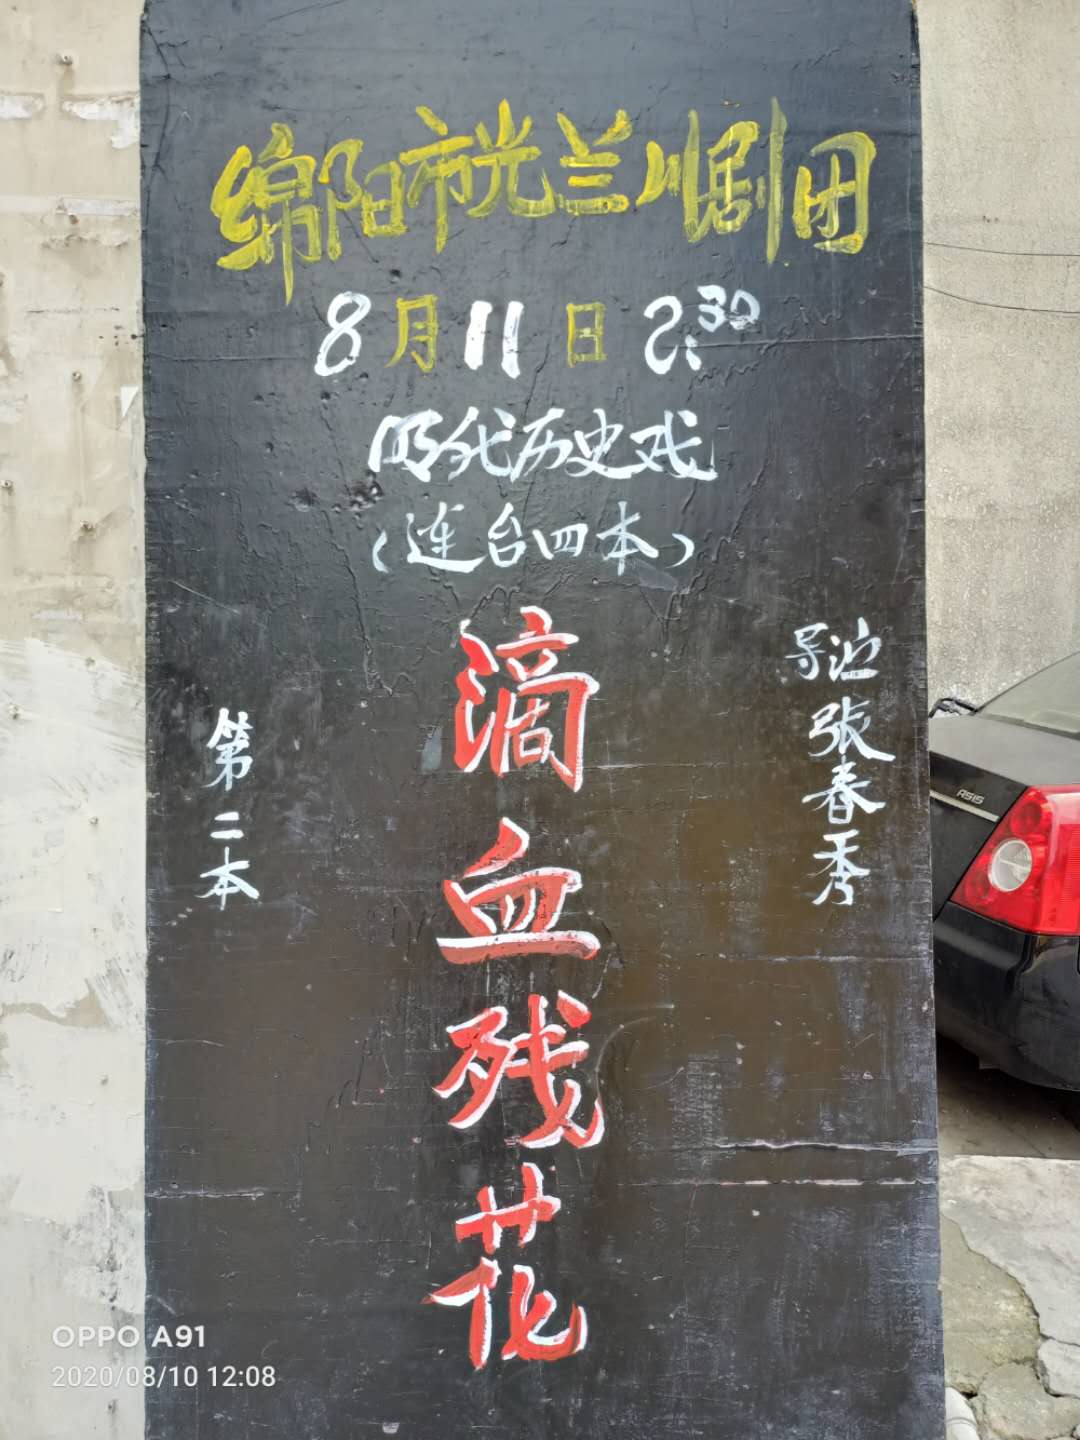 绵阳市光兰川剧团
8月11日 2:30
明代历史戏
(连台四本)
导演 张春秀
滴血残花
第二本
RS15
OPPO A91
2020/08/10 12:08